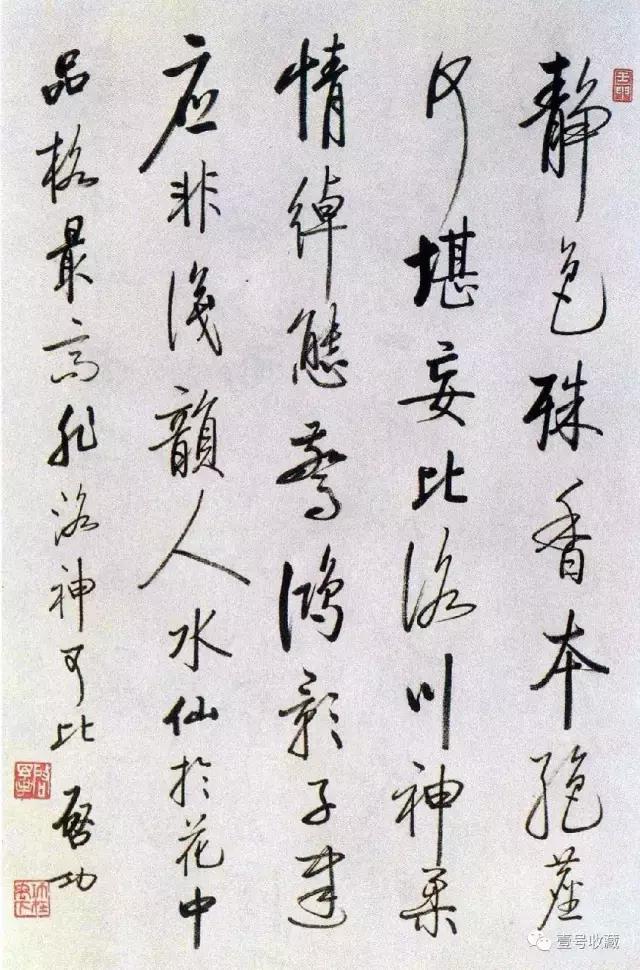 静色殊香本絶塵
何堪妄比洛川神柔
情綽態驚鴻影子建
应非淺韻人水仙於花中
品格最高非洛神可比 啓功
壹号收藏